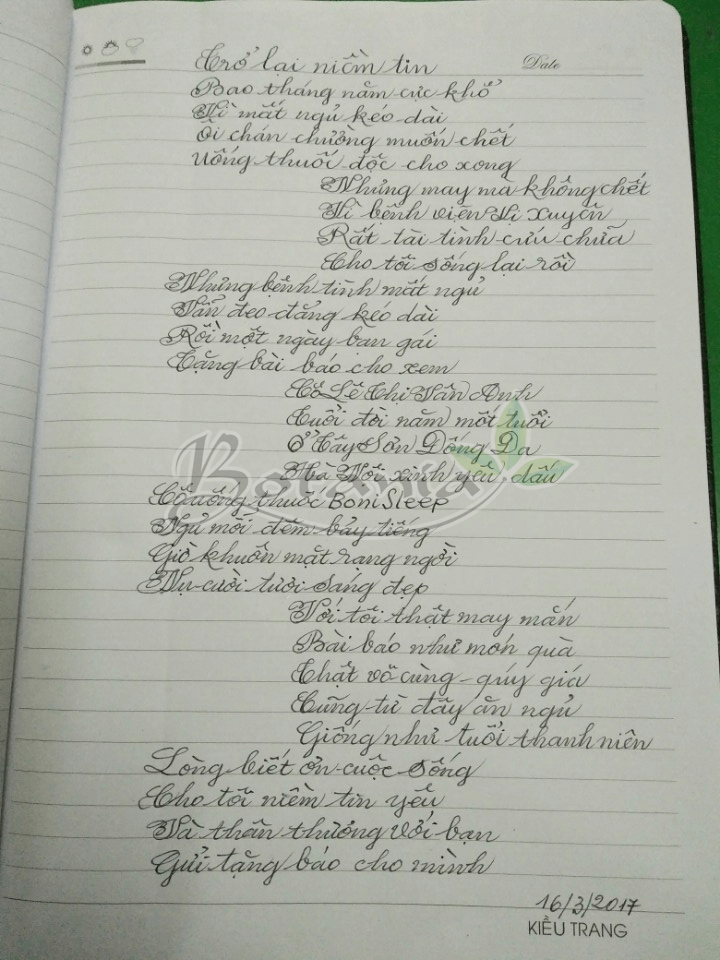 Date
Trở lại niềm tin
Bao tháng năm cực khổ
Vì mất ngủ kéo dài
Ôi chán chường muốn chết
Uống thuốc độc cho xong
Nhưng may mà không chết
Vì bệnh viện Vị Xuyên
Rất tài tình cứu chữa
Cho tôi sống lại rồi
Nhưng bệnh tình mất ngủ
Vẫn đeo đẳng kéo dài
Rồi một ngày bạn gái
Tặng bài báo cho xem
Cô Lê Thị Vân Anh
Cuối đời năm mốt tuổi
Ở Tây Sơn Đống Đa
Hà Nội xinh yêu dấu
Cô uống thuốc BoniSleep
Ngủ mỗi đêm bảy tiếng
Giờ khuôn mặt rạng ngời
Nụ cười tươi sáng đẹp
Với tôi thật may mắn
Bài báo như món quà
Thật vô cùng quý giá
Cũng từ đây ăn ngủ
Giống như tuổi thanh niên
Lòng biết ơn cuộc sống
Cho tôi niềm tin yêu
Và thân thương với bạn
Gửi tặng báo cho mình
16/3/2017
KIỀU TRANG
Botania